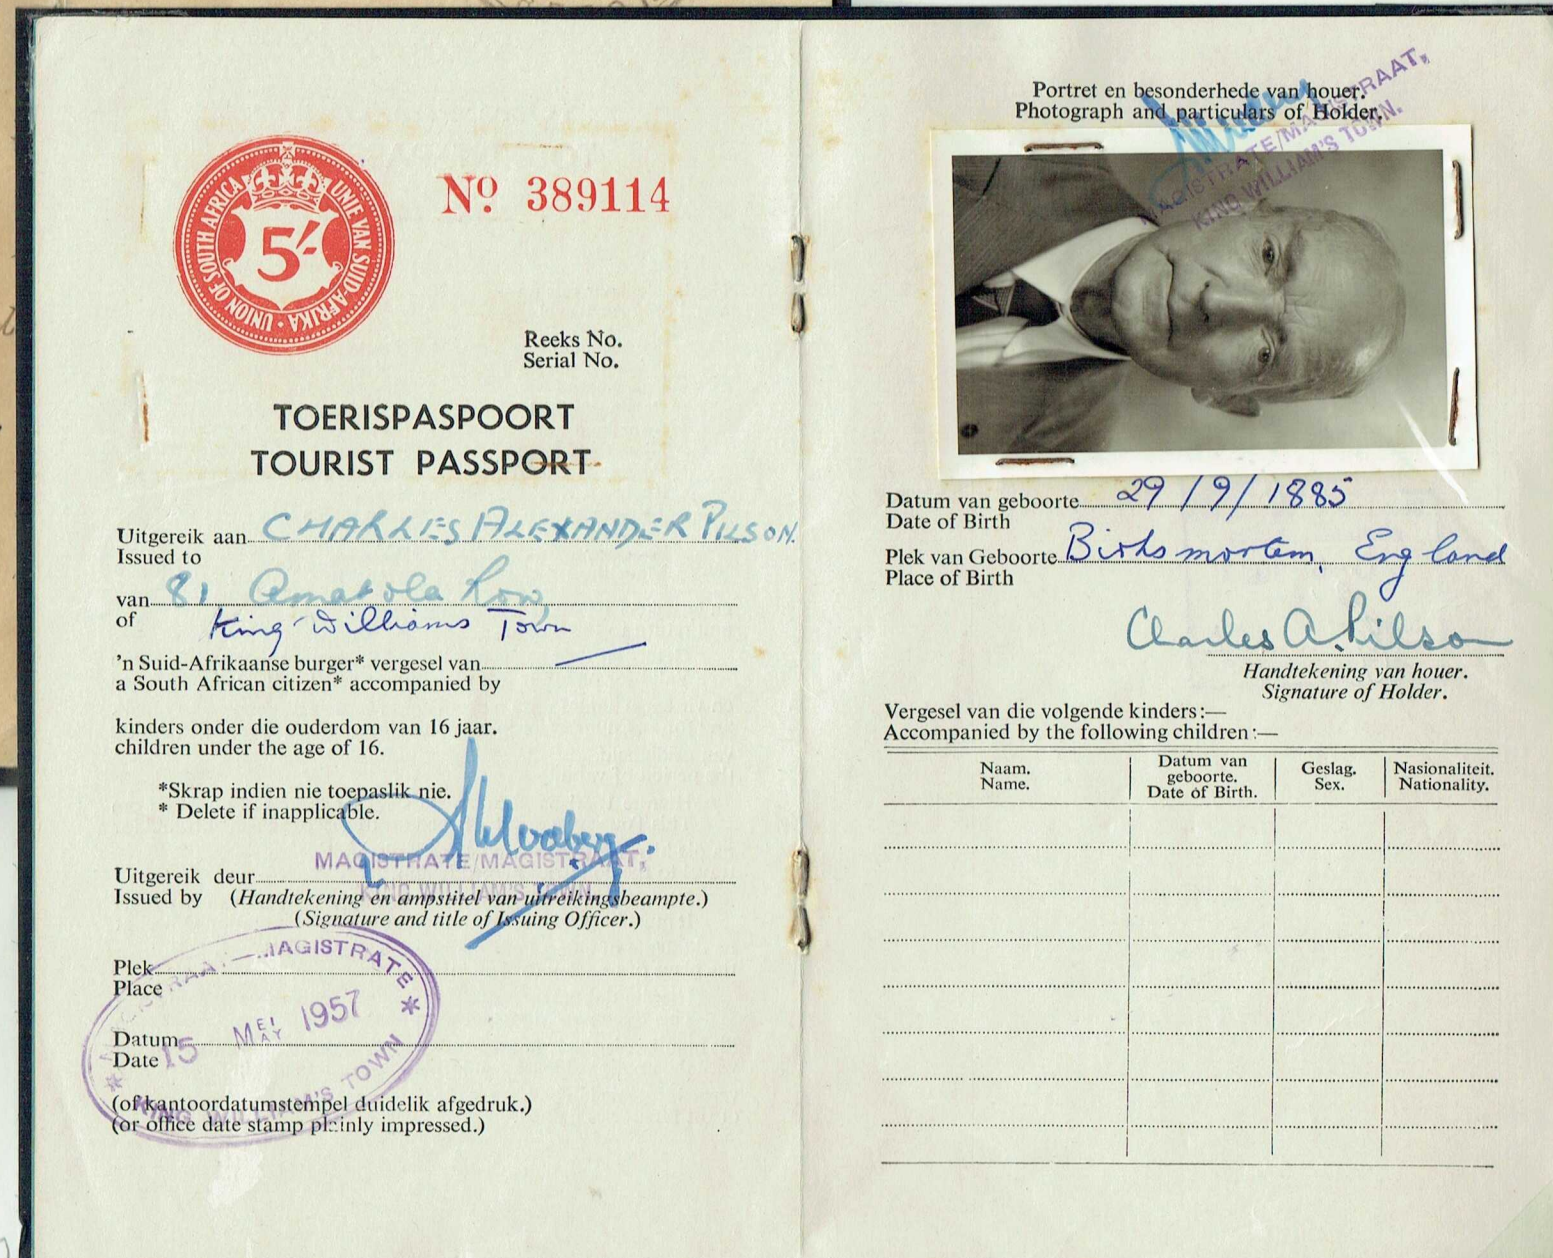 UNION OF SOUTH AFRICA · UNIE VAN SUID-AFRIKA
5/-
Nº 389114
Reeks No.
Serial No.
TOERISPASPOORT
TOURIST PASSPORT
Uitgereik aan CHARLES ALEXANDER PILSON.
Issued to
van 81 Amatola Row,
of King Williams Town
'n Suid-Afrikaanse burger* vergesel van
a South African citizen* accompanied by
kinders onder die ouderdom van 16 jaar.
children under the age of 16.
*Skrap indien nie toepaslik nie.
* Delete if inapplicable.
MAGISTRATE/MAGISTRAAT,
KING WILLIAM'S TOWN.
Uitgereik deur
Issued by (Handtekening en ampstitel van uitreikingsbeampte.)
(Signature and title of Issuing Officer.)
MAGISTRAAT — MAGISTRATE
Plek
Place
15 MEI MAY 1957
Datum
Date
KING WILLIAM'S TOWN
(of kantoordatumstempel duidelik afgedruk.)
(or office date stamp plainly impressed.)
Portret en besonderhede van houer.
Photograph and particulars of Holder.
MAGISTRATE/MAGISTRAAT,
KING WILLIAM'S TOWN.
Datum van geboorte 29/9/1885
Date of Birth
Plek van Geboorte Birtsmortem, England
Place of Birth
Charles A. Pilson
Handtekening van houer.
Signature of Holder.
Vergesel van die volgende kinders:—
Accompanied by the following children:—
Naam. Name.
Datum van geboorte. Date of Birth.
Geslag. Sex.
Nasionaliteit. Nationality.